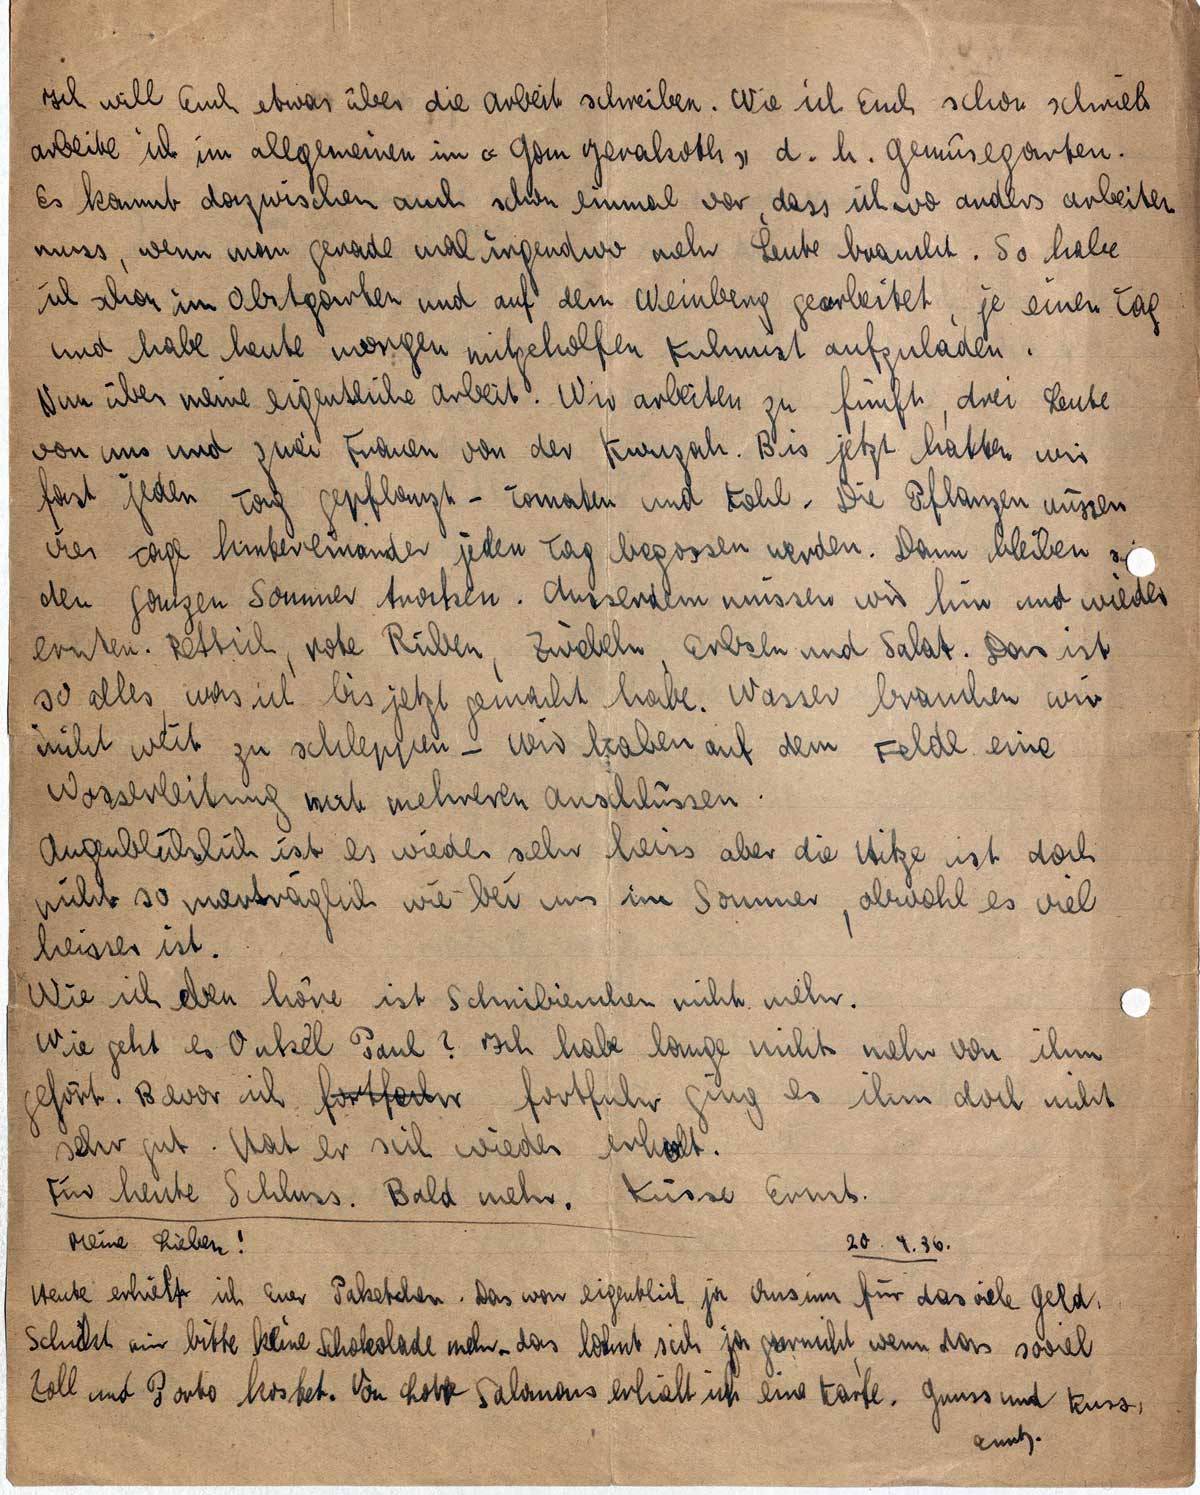 Ich will Euch etwas über die Arbeit schreiben. Wie ich Euch schon schrieb
arbeite ich im allgemeinen im « Gan Jerakoth » d. h. Gemüsegarten.
Es kommt dazwischen auch schon einmal vor, dass ich wo anders arbeiten
muss, wenn man gerade mal irgendwo mehr Leute braucht. So habe
ich schon im Obstgarten und auf dem Weinberg gearbeitet, je einen Tag
und habe heute morgen mitgeholfen Kuhmist aufzuladen.
Nun über meine eigentliche Arbeit. Wir arbeiten zu fünft, drei Leute
von uns und zwei Frauen von der Kwuzah. Bis jetzt hatten wir
fast jeden Tag gepflanzt - Tomaten und Kohl. Die Pflanzen müssen
vier Tage hintereinander jeden Tag begossen werden. Dann bleiben
den ganzen Sommer trocken. Ausserdem müssen wir hin und wieder
ernten. Rettich, rote Rüben, Zwiebeln, Erbsen und Salat. Das ist
so alles, was ich bis jetzt gemacht habe. Wasser brauchen wir
nicht weit zu schleppen - wir haben auf dem Felde eine
Wasserleitung mit mehreren Anschlüssen.
Augenblicklich ist es wieder sehr heiss aber die Hitze ist doch
nicht so unerträglich wie bei uns im Sommer, obwohl es viel
heisser ist.
Wie ich eben höre ist nicht mehr.
Wie geht es Onkel Paul? Ich habe lange nichts mehr von ihm
gehört. Bevor ich fortfuhr ging es ihm doch nicht
sehr gut. Hat er sich wieder erholt.
Für heute Schluss. Bald mehr. Küsse Ernst.
Meine Lieben! 20. 4. 36.
Heute erhielt ich Euer Paketchen. Das war eigentlich ja Unsinn für das viele Geld.
Schickt mir bitte keine Schokolade mehr - das lohnt sich ja garnicht, wenn das soviel
Zoll und Porto kostet. Von Salomons erhielt ich eine Karte. Gruss und Kuss,
Ernst.